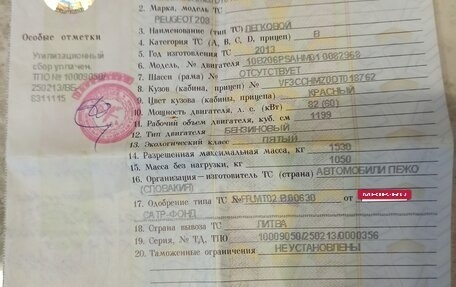 Особые отметки
Утилизационный
сбор уплачен.
ТПО № 10009050/
250213/ВБ
6311115
2. Марка, модель ТС
PEUGEOT 208
3. Наименование (тип ТС) ЛЕГКОВОЙ
4. Категория ТС (А, В, С, D, прицеп) B
5. Год изготовления ТС 2013
6. Модель, № двигателя
7. Шасси (рама) № ОТСУТСТВУЕТ
8. Кузов (кабина, прицеп) №
9. Цвет кузова (кабины, прицепа) КРАСНЫЙ
10. Мощность двигателя, л. с. (кВт) 82 (60)
11. Рабочий объем двигателя, куб. см 1199
12. Тип двигателя БЕНЗИНОВЫЙ
13. Экологический класс ПЯТЫЙ
14. Разрешенная максимальная масса, кг 1538
15. Масса без нагрузки, кг 1050
16. Организация—изготовитель ТС (страна) АВТОМОБИЛИ ПЕЖО
(СЛОВАКИЯ)
17. Одобрение типа ТС № от
САТР-ФОНД
18. Страна вывоза ТС ЛИТВА
19. Серия, № ТД, ТПО 10009050/250213/0000356
20. Таможенные ограничения НЕ УСТАНОВЛЕНЫ